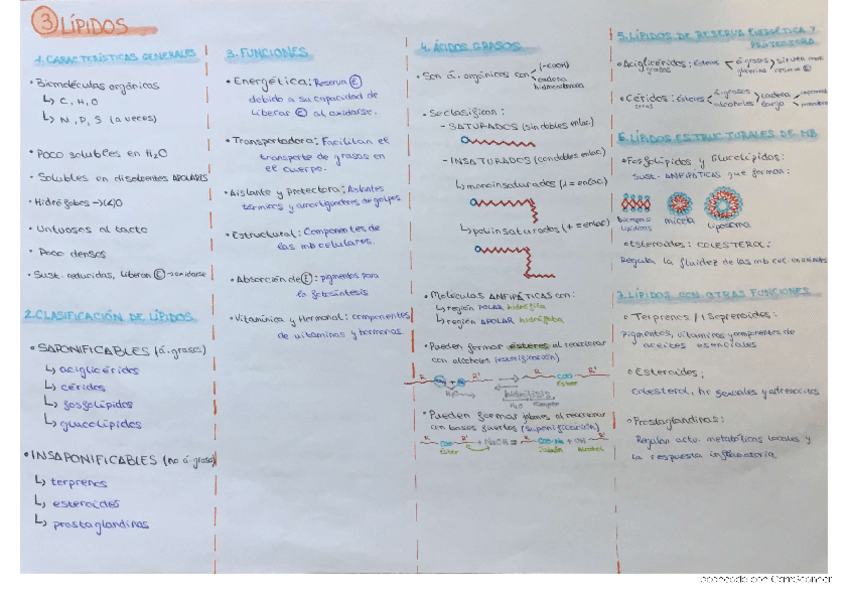 3 LÍPIDOS
1. CARACTERÍSTICAS GENERALES
• Biomoléculas orgánicas
↳ C, H, O
↳ N, P, S (a veces)
• Poco solubles en H₂O
• Solubles en disolventes APOLARES
• Hidrófobos
• Untuosos al tacto
• Poco densos
• Sust. reducidas, liberan E → oxidarse
2. CLASIFICACIÓN DE LÍPIDOS
• SAPONIFICABLES (á. grasos)
↳ aciglicéridos
↳ céridos
↳ fosfolípidos
↳ glucolípidos
• INSAPONIFICABLES (no á. grasos)
↳ terprenos
↳ esteroides
↳ prostaglandinas
3. FUNCIONES
• Energética: Reserva E
debido a su capacidad de
liberar E al oxidarse.
• Transportadora: Facilitan el
transporte de grasas en
el cuerpo.
• Aislante y Protectora: Aislantes
térmicos y amortiguadores de golpes
• Estructural: Componentes de
las mb celulares.
• Absorción de E: pigmentos para
la fotosíntesis
• Vitamínica y Hormonal: componentes
de vitaminas y hormonas
4. ÁCIDOS GRASOS
• Son á. orgánicos con (-COOH)
cadena
hidrocarbonada
• Se clasifican:
- SATURADOS (sin dobles enlac.)
- INSATURADOS (con dobles enlac.)
↳ monoinsaturados (1 = enlac.)
↳ poliinsaturados (+ = enlac)
• Moléculas ANFIPÁTICAS con:
↳ región POLAR hidrófila
↳ región APOLAR hidrófoba
• Pueden formar ésteres al reaccionar
con alcoholes (esterificación)
R R' R COO R'
H₂O hidrólisis Éster
• Pueden formar jabones al reaccionar
con bases fuertes (saponificación)
R COO R' + NaOH R COO-Na + OH R'
Éster Jabón Alcohol
5. LÍPIDOS DE RESERVA ENERGÉTICA Y
PROTECTORA
• Acilglicéridos: Ésteres á. grasos
grasas glicerina reserva E
• Céridos: Ésteres á. grasos cadena
ceras alcoholes larga
6. LÍPIDOS ESTRUCTURALES DE MB
• Fosfolípidos y Glucolípidos:
Sust. ANFIPÁTICAS que forman:
bicapas
lipídicas
micela
liposoma
• Esteroides: COLESTEROL:
Regula la fluidez de las mb cel. en animales
7. LÍPIDOS CON OTRAS FUNCIONES
• Terprenos / Isoprenoides:
Pigmentos, vitaminas y componentes de
aceites esenciales
• Esteroides:
Colesterol, hr sexuales y
• Prostaglandinas:
Regulan actv. metabólicas locales y
la respuesta inflamatoria
Escaneado con CamScanner